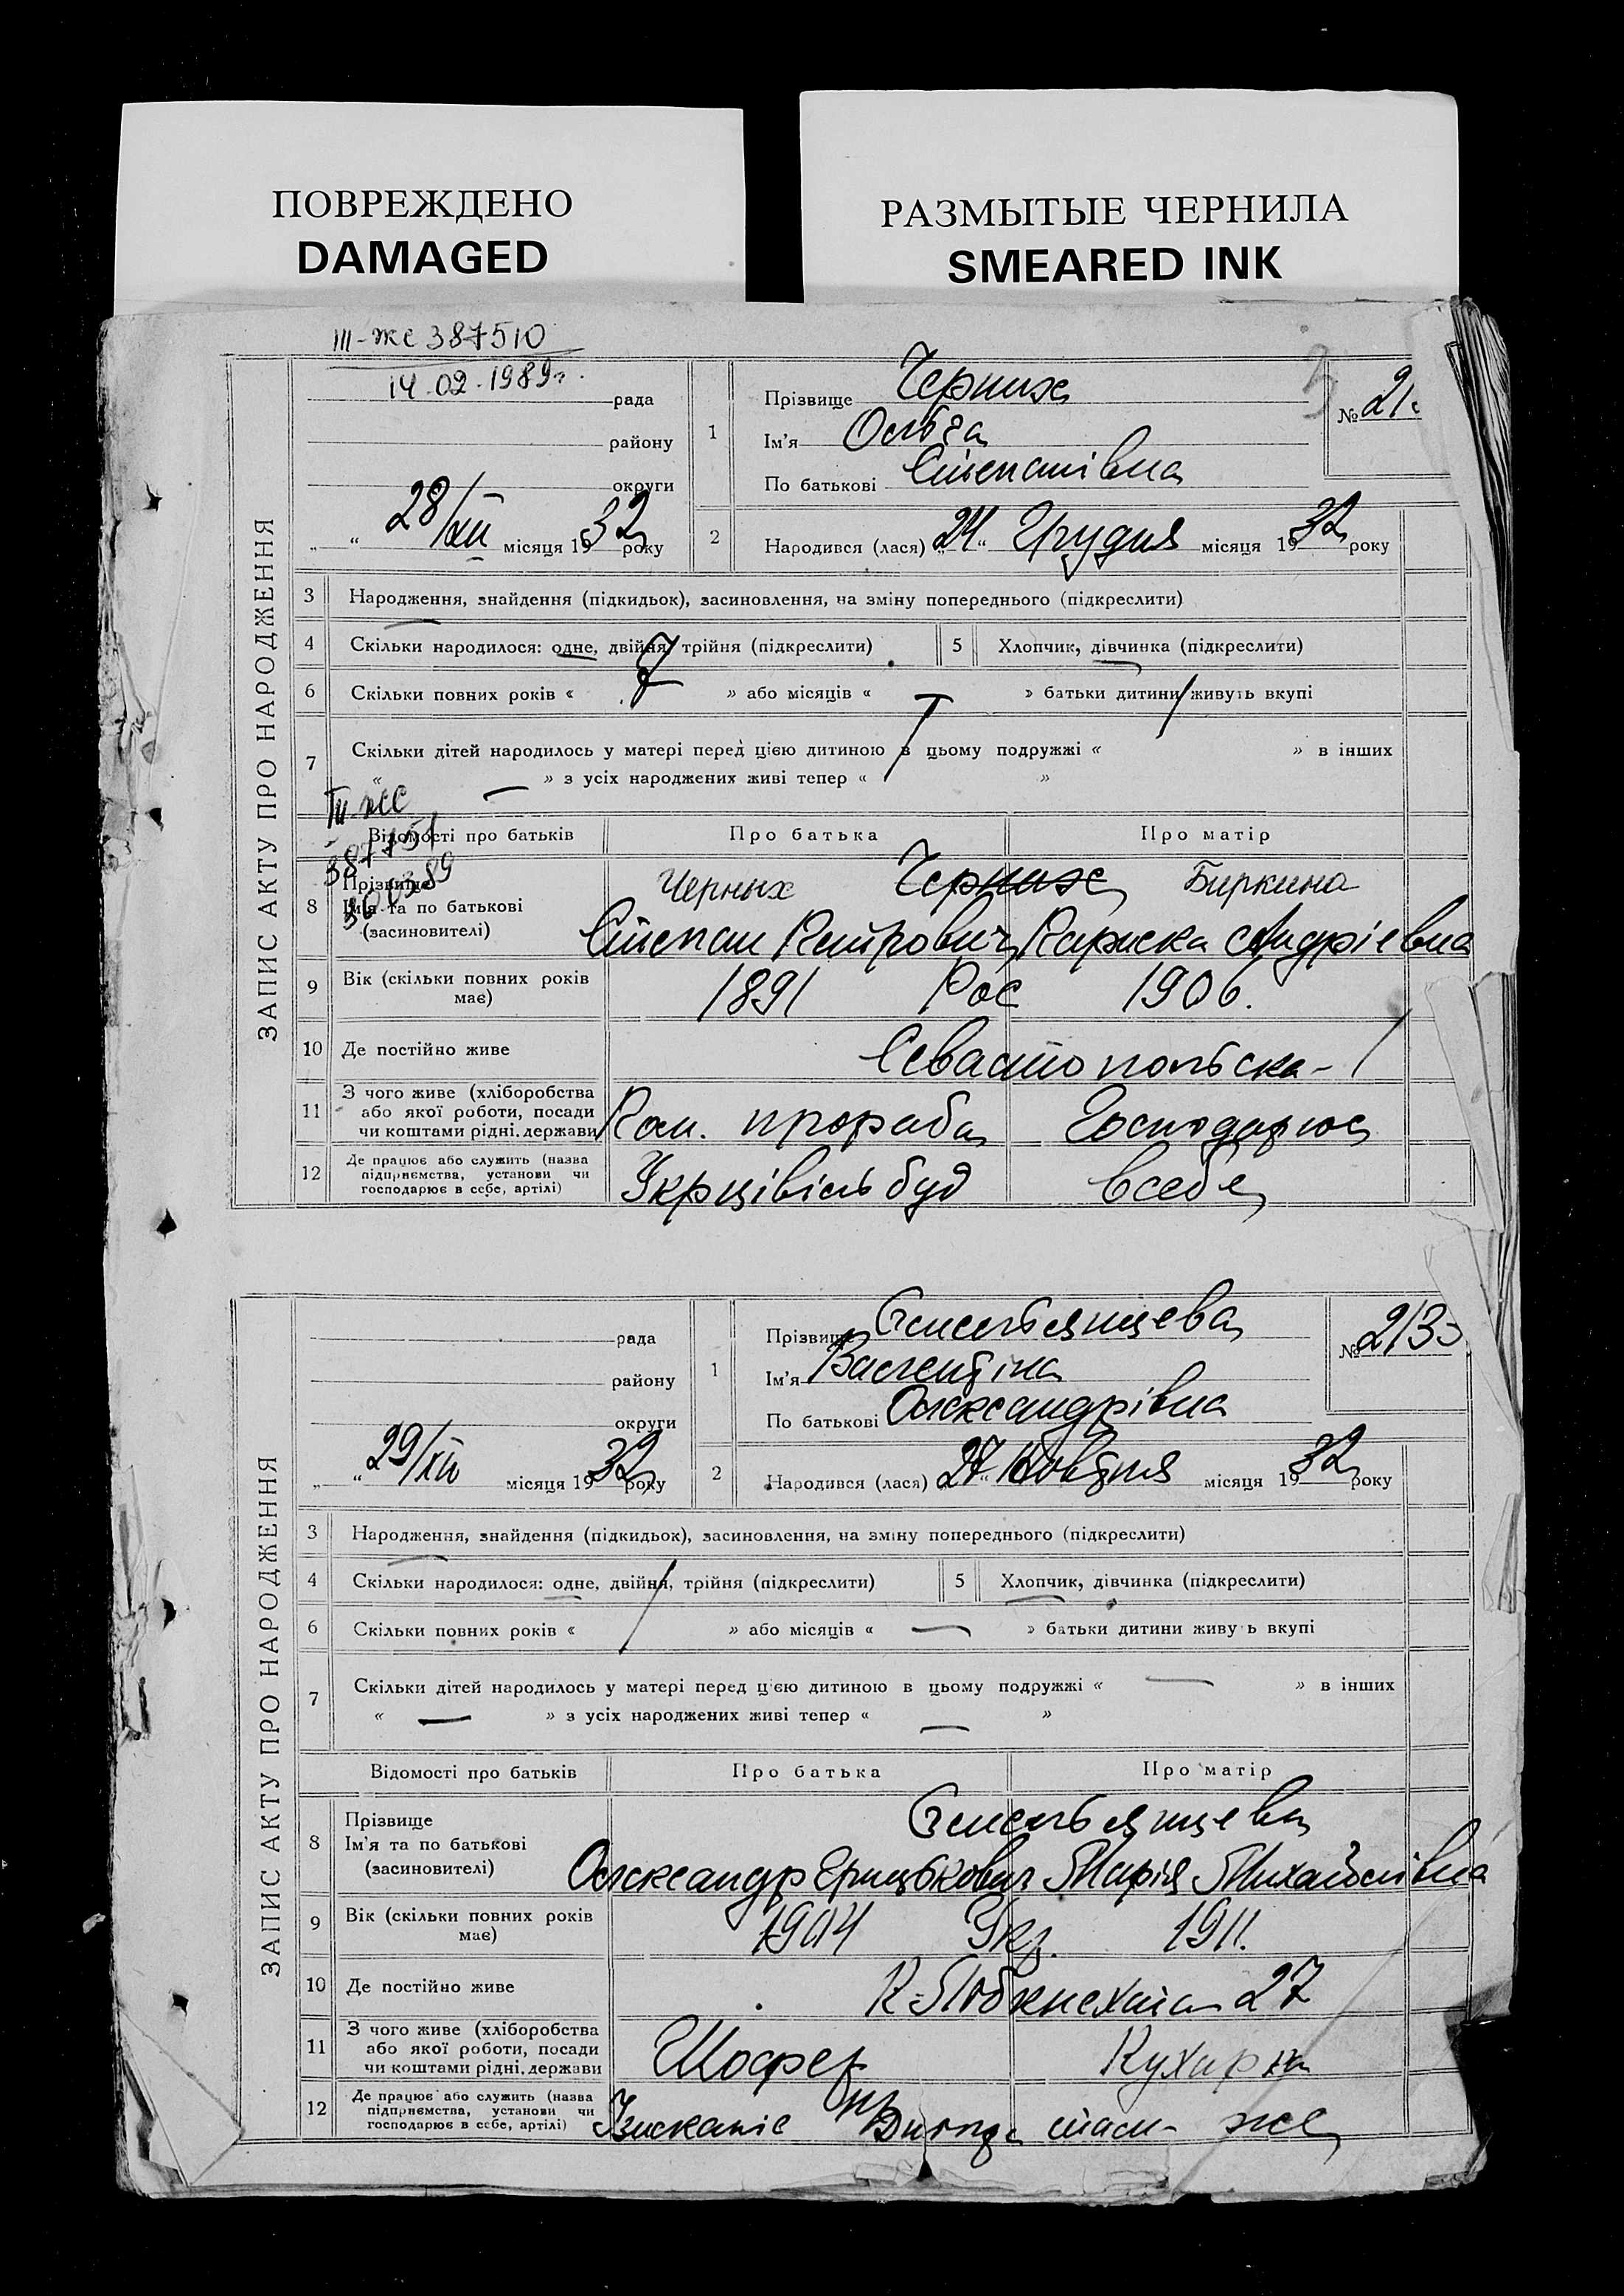 ПОВРЕЖДЕНО
DAMAGED
РАЗМЫТЫЕ ЧЕРНИЛА
SMEARED INK
III-жс 387510
14.02.1989г.
ЗАПИС АКТУ ПРО НАРОДЖЕННЯ
рада
району
округи
„ “ 28/XII місяця 1932 року
1
Прізвище Черних
Ім'я Ольга
По батькові Степанівна
№ 21
2 Народився (лася) „24“ Грудня місяця 1932 року
3 Народження, знайдення (підкидьок), засиновлення, на зміну попереднього (підкреслити)
4 Скільки народилося: одне, двійня, трійня (підкреслити) 5 Хлопчик, дівчинка (підкреслити)
6 Скільки повних років « 7 » або місяців « » батьки дитини живуть вкупі
7 Скільки дітей народилось у матері перед цією дитиною в цьому подружжі « » в інших
« — » з усіх народжених живі тепер « »
III-жс
Відомості про батьків Про батька Про матір
8 Прізвище
Ім'я та по батькові
(засиновителі)
Черных Черних Биркина
Степан Андрієвна
9 Вік (скільки повних років має) 1891 Рос 1906.
10 Де постійно живе Севастопольська - 1
11 З чого живе (хліборобства
або якої роботи, посади
чи коштами рідні, держави
прораба Господарює
12 Де працює або служить (назва
підприємства, установи чи
господарює в себе, артілі)
Укрцівільбуд в себе
ЗАПИС АКТУ ПРО НАРОДЖЕННЯ
рада
району
округи
„ “ 29/XII місяця 1932 року
1
Прізвище Ємельянцева
Ім'я Валентіна
По батькові Олександрівна
№ 213
2 Народився (лася) „27“ Жовтня місяця 1932 року
3 Народження, знайдення (підкидьок), засиновлення, на зміну попереднього (підкреслити)
4 Скільки народилося: одне, двійня, трійня (підкреслити) 5 Хлопчик, дівчинка (підкреслити)
6 Скільки повних років « / » або місяців « — » батьки дитини живуть вкупі
7 Скільки дітей народилось у матері перед цією дитиною в цьому подружжі « — » в інших
« — » з усіх народжених живі тепер « — »
Відомості про батьків Про батька Про матір
8 Прізвище
Ім'я та по батькові
(засиновителі)
Ємельянцева
Олександр Грицькович Марія Михайлівна
9 Вік (скільки повних років має) 1904 Укр. 1911.
10 Де постійно живе К-Лібкнехта 27
11 З чого живе (хліборобства
або якої роботи, посади
чи коштами рідні, держави
Шофер Кухарка
12 Де працює або служить (назва
підприємства, установи чи
господарює в себе, артілі)